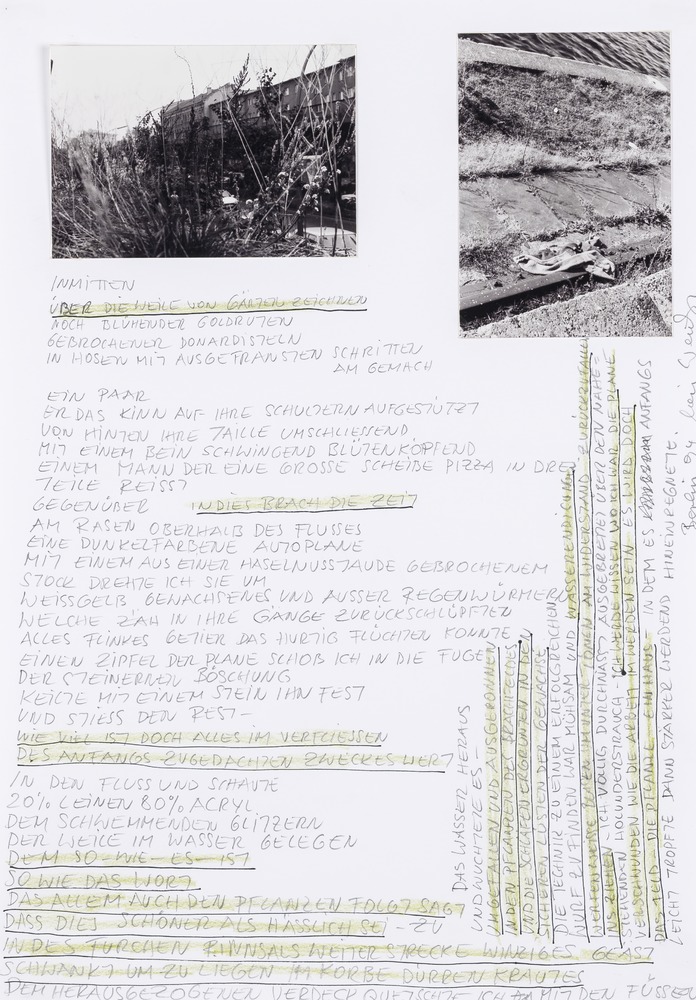 INMITTEN
ÜBER DIE WEILE VON GÄRTEN ZEICHNEN
NOCH BLÜHENDER GOLDRUTEN
GEBROCHENER DONARDISTELN
IN HOSEN MIT AUSGEFRANSTEN SCHRITTEN
AM GEMACH
EIN PAAR
ER DAS KINN AUF IHRE SCHULTERN AUFGESTÜTZT
VON HINTEN IHRE TAILLE UMSCHLIESSEND
MIT EINEM BEIN SCHWINGEND BLÜTENKÖPFEND
EINEM MANN DER EINE GROSSE SCHEIBE PIZZA IN DREI
TEILE REISST
GEGENÜBER IN DIES BRACH DIE ZEIT
AM RASEN OBERHALB DES FLUSSES
EINE DUNKELFARBENE AUTOPLANE
MIT EINEM AUS EINER HASELNUSSTAUDE GEBROCHENEM
STOCK DREHTE ICH SIE UM
WEISSGELB GEWACHSENES UND AUSSER REGENWÜRMERN
WELCHE ZÄH IN IHRE GÄNGE ZURÜCKSCHLÜPFTEN
ALLES FLINKES GETIER DAS HURTIG FLÜCHTEN KONNTE
EINEN ZIPFEL DER PLANE SCHOB ICH IN DIE FUGE
DER STEINERNEN BÖSCHUNG
KEILTE MIT EINEM STEIN IHN FEST
UND STIESS DEN REST-
WIE VIEL IST DOCH ALLES IM VERFLIESSEN
DES ANFANGS ZUGEDACHTEN ZWECKES WERT
IN DEN FLUSS UND SCHAUTE
20% LEINEN 80% ACRYL
DEM SCHWEMMENDEN GLITZERN
DER WEILE IM WASSER GELEGEN
DEM SO-WIE-ES-IST
SO WIE DAS WORT
DAS ALLEM AUCH DEN PFLANZEN FOLGT SAGT
DASS DIES SCHÖNER ALS HÄSSLICH SEI - ZU
IN DES FURCHEN RINNSALS WEITER STRECKE WINZIGES GEÄST
SCHWANKT UM ZU LIEGEN IM KORBE DÜRREN KRAUTES
DEM HERAUSGEZOGENEN VERDECK QUETSCHTE ICH MIT DEN FÜSSEN
DAS WASSER HERAUS
UND WUCHTETE ES -
UND DIE SCHLAFEN ERGRÜNTEN IN DEN
SICHEREN LÜSTEN DER GEWÄCHSE
DIE TECHNIK ZU EINEM ERFOLGREICHEN
WURF ZU FINDEN WAR MÜHSAM UND
INS ZIEHEN - ICH VÖLLIG DURCHNÄSST AUSGEBREITET ÜBER DEN NAHE=
STEHENDEN HOLUNDERSTRAUCH - ICH WERDE WISSEN WO ICH WAR DIE PLANE
VERSCHWUNDEN WIE DIE ARBEIT IM WERDEN SEIN ES WIRD DOCH
DAS FELD DIE PFLANZE EIN HAUS - IN DEM ES ANFANGS
LEICHT TROPFTE DANN STÄRKER WERDEND HINEINREGNETE.
Berlin